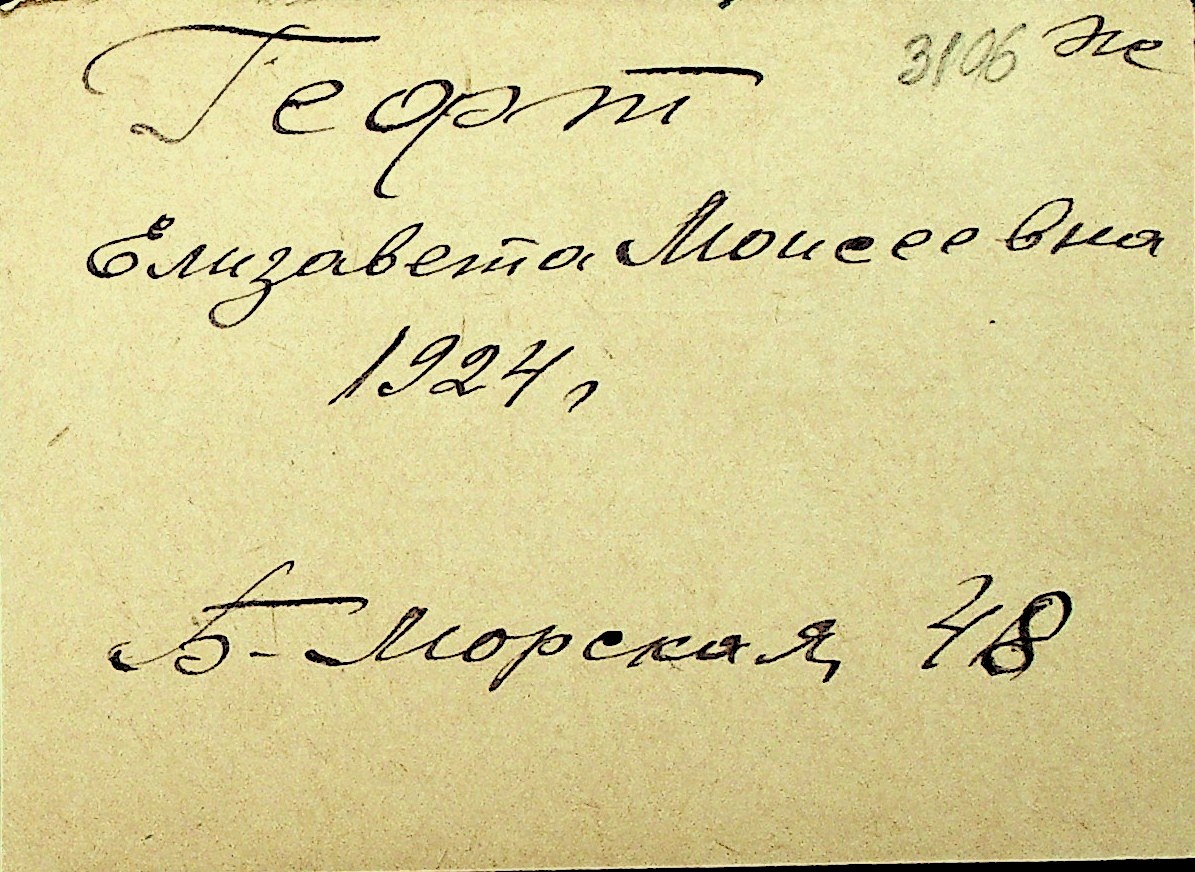 3106
Гефт
Елизавета Моисеевна
1924 г
Б-Морская, 48